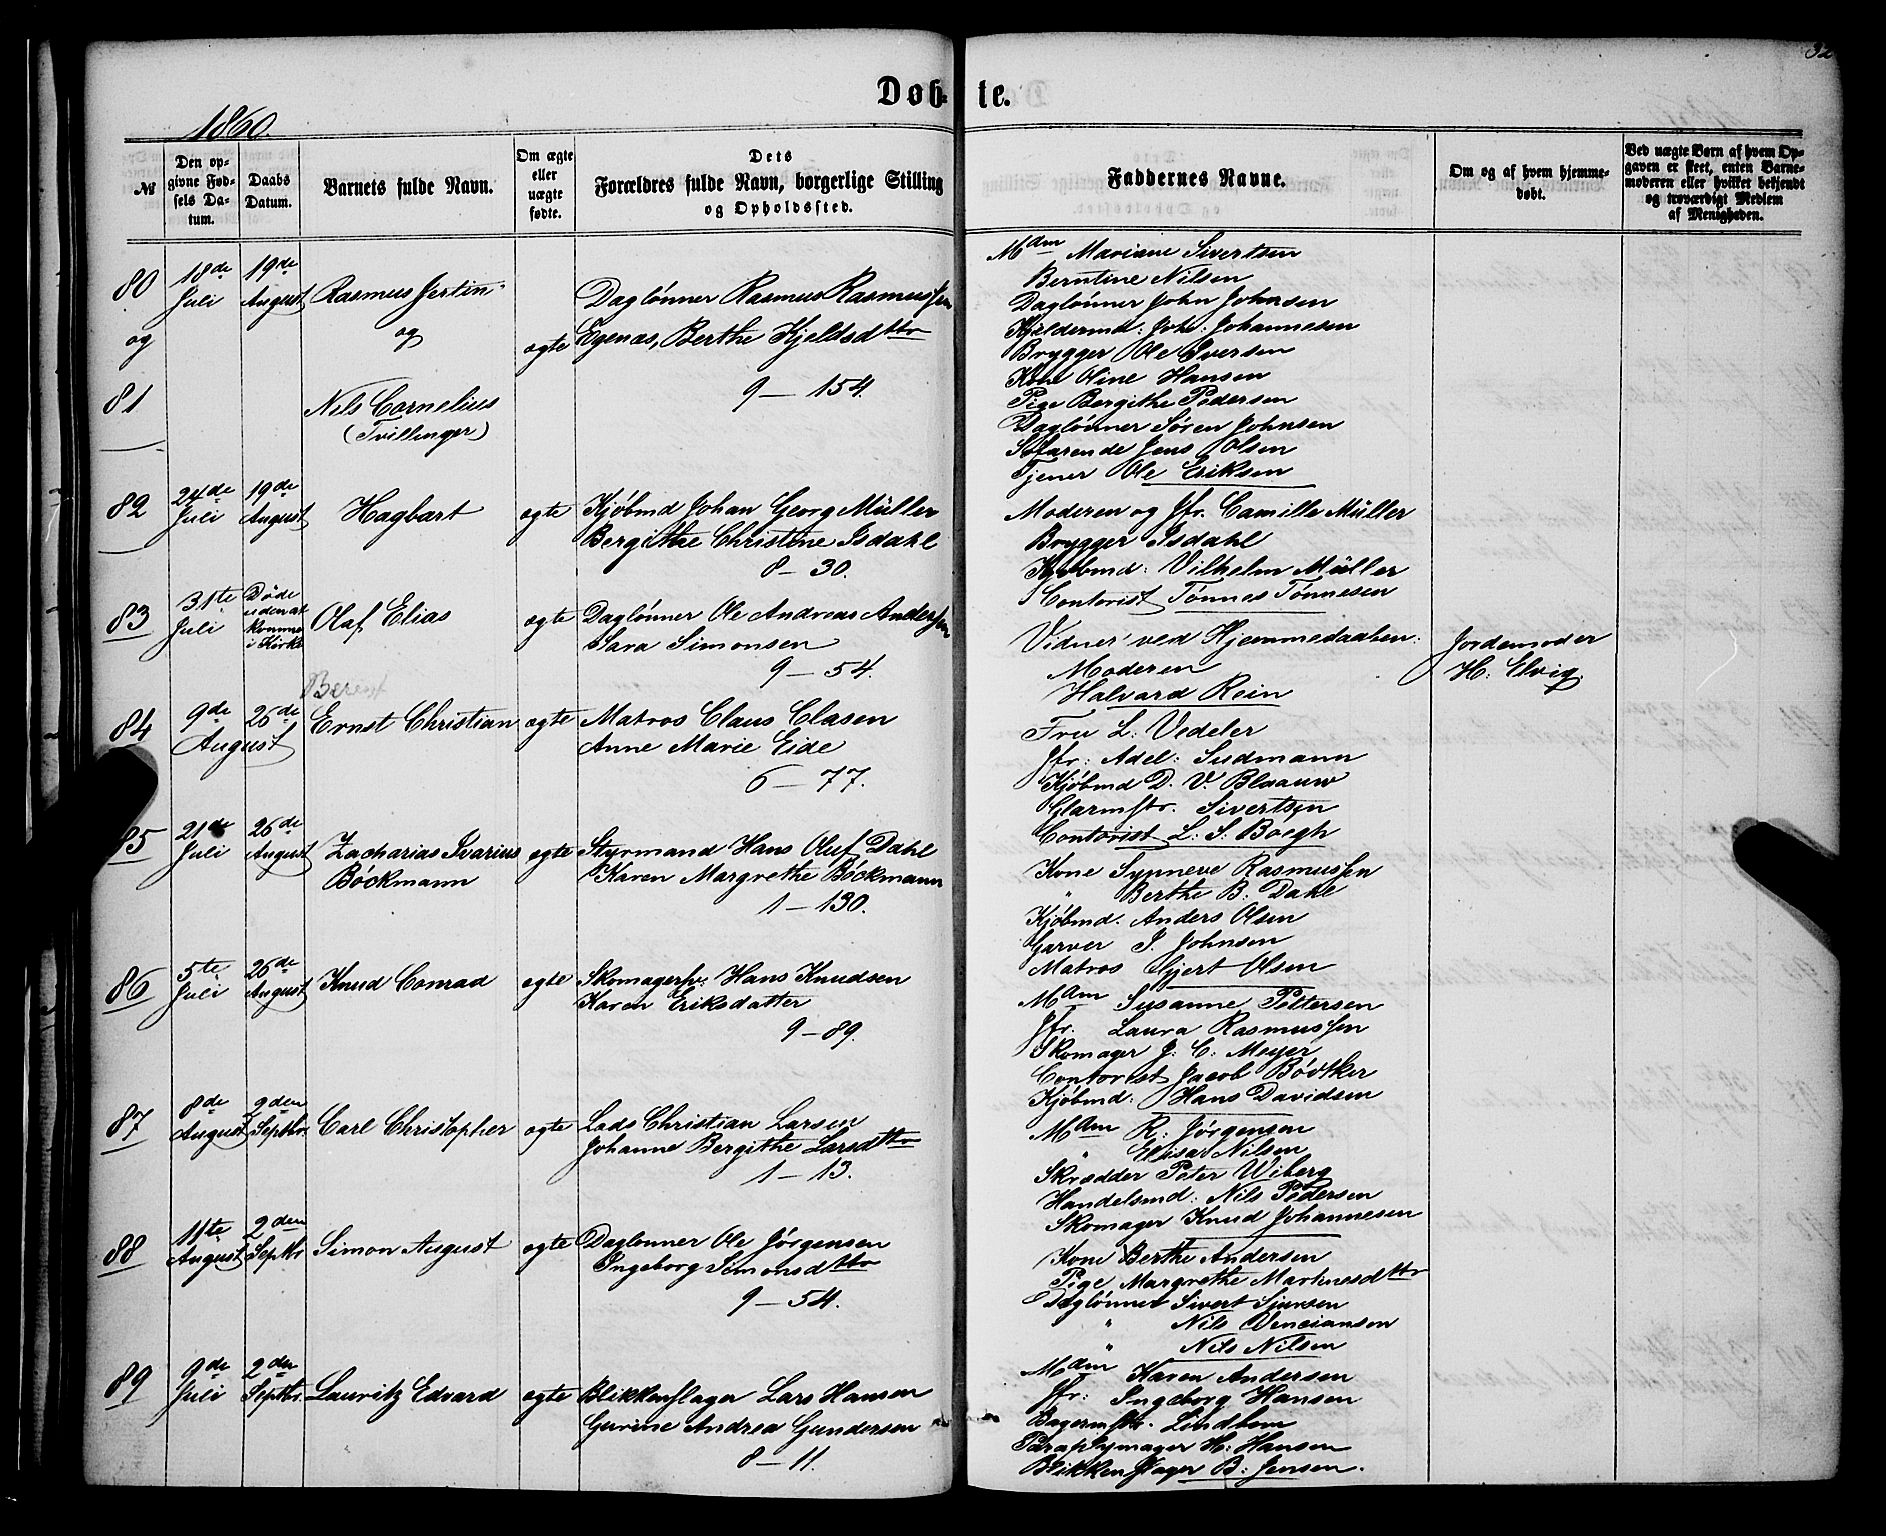 32
Døb- te.
1860.
№
Den op-
givne Fød-
sels Da-
tum.
Daabs
Datum.
Barnets fulde Navn.
Om ægte
eller
uægte
fødte.
Dets
Forældres fulde Navn, borgerlige Stilling
og Opholdssted.
Faddernes Navne.
Om og af hvem hjemme-
døbt.
Ved uægte Børn af hvem Op-
gaven er skeet, enten Barne-
moderen eller hvilket bekjendt
og troværdigt Medlem
af Menigheden.
80
og
81
18de
Juli
19de
August
Rasmus Jertin
og
Nils Cornelius
(Tvillinger)
ægte
Daglønner Rasmus Rasmussen
Egenæs, Berthe Kjeldsdttr
9 - 154.
Mdm Mariane Sivertsen
Berntine Nilsen
Daglønner John Johnsen
Kjeldermd: Joh. Johannesen
Brygger Ole Iversen
Kone Oline Hansen
Pige Bergithe Pedersen
Daglønner Søren Johnsen
Søfarende Jens Olsen
Tjener Ole Eriksen
82
24de
Juli
19de
August
Hagbart
ægte
Kjøbmd Johan Georg Müller
Bergithe Christine Isdahl
8 - 30.
Moderen og Jfr. Camilla Müller
Brygger Isdahl
Kjøbmd: Vilhelm Müller
Contorist Tønnes Tønnesen
83
31te
Juli
Døde
uden at
komme
i Kirke
Olaf Elias
ægte
Daglønner Ole Andreas Andersen
Sara Simonsen
9 - 54.
Vidner ved Hjemmedaaben:
Moderen
Halvard Rein
Jordemoder
H: Elvig.
84
9de
August
26de
Berent
Ernst Christian
ægte
Matros Claus Clasen
Anne Marie Eide
6 - 77.
Fru L. Vedeler
Jfr: Adel: Sudmann
Kjøbmd D. V. Blaauw
Glarmstr. Sivertsen
Contorist L. S. Boegh
85
21de
Juli
26de
August
Zacharias Ivarius
Bøckmann
ægte
Styrmand Hans Oluf Dahl
Karen Margrethe Bøckmann
1 - 130.
Kone Synneve Rasmussen
" Berthe B. Dahl
Kjøbmd. Anders Olsen
Garver I. Johnsen
Matros Gjert Olsen
86
5te
Juli
26de
August
Knud Conrad
ægte
Skomagersv: Hans Knudsen
Karen Eriksdatter
9 - 89.
Mdm Susanne Pettersen
Jfr. Laura Rasmussen
Skomager J. C. Meyer
Contorist Jacob Bødtker
Kjøbmd: Hans Davidsen
87
8de
August
2den
Septbr.
Carl Christopher
ægte
Lods Christian Larsen
Johanne Bergithe Larsdttr
1 - 13.
Mdm R. Jørgensen
" Elisa Nilsen
Skrædder Peter Wiberg
Handelsmd: Nils Pedersen
Skomager Knud Johannesen
88
11te
August
2den
Septbr
Simon August
ægte
Daglønner Ole Jørgensen
Ingeborg Simonsdttr
9 - 54.
Kone Berthe Andersen
Pige Margrethe Markusdttr
Daglønner Sivert Sjursen
" Nils Vinciansen
" Nils Nilsen
89
9de
Juli
2den
Septbr.
Lauritz Edvard
ægte
Blikkenslager Lars Hansen
Gurine Andrea Gundersen
8 - 11.
Mdm Karen Andersen
Jfr: Ingeborg Hansen
Bagermstr. Lindbom
Paraplymager H. Hansen
Blikkenslager B: Jensen.